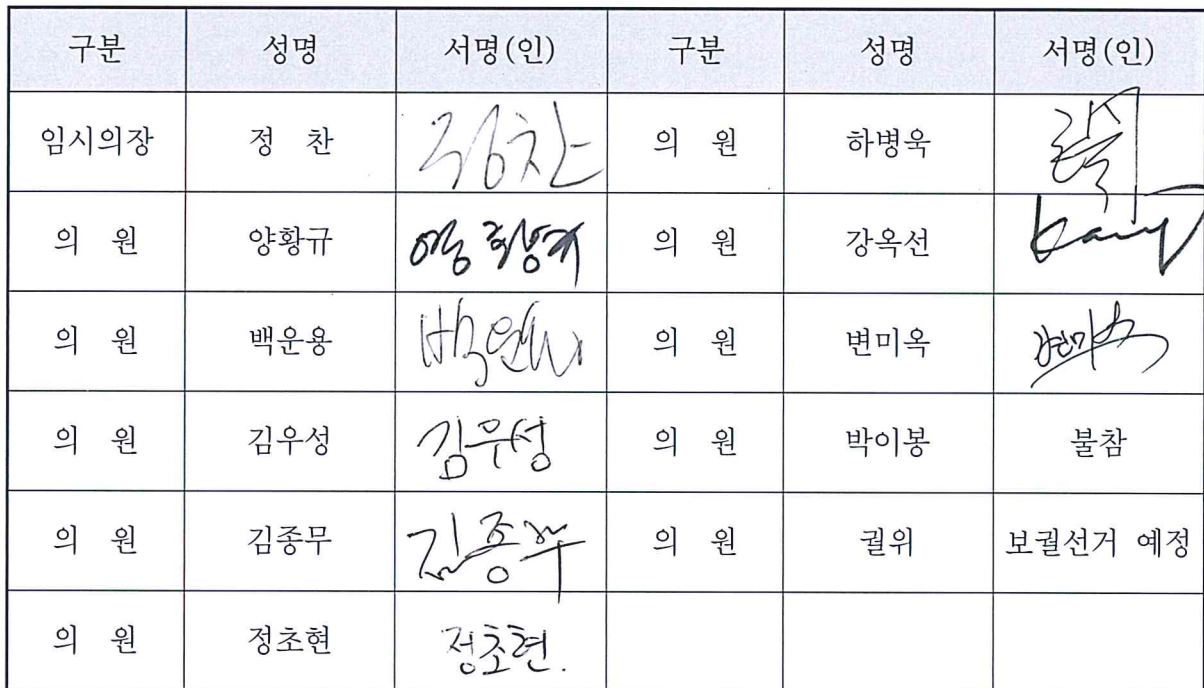 구분 성명 서명(인) 구분 성명 서명(인)
임시의장 정 찬 정찬 의 원 하병욱
의 원 양황규 의 원 강옥선 kang
의 원 백운용 백운용 의 원 변미옥 변미옥
의 원 김우성 김우성 의 원 박이봉 불참
의 원 김종무 김종무 의 원 궐위 보궐선거 예정
의 원 정초현 정초현.